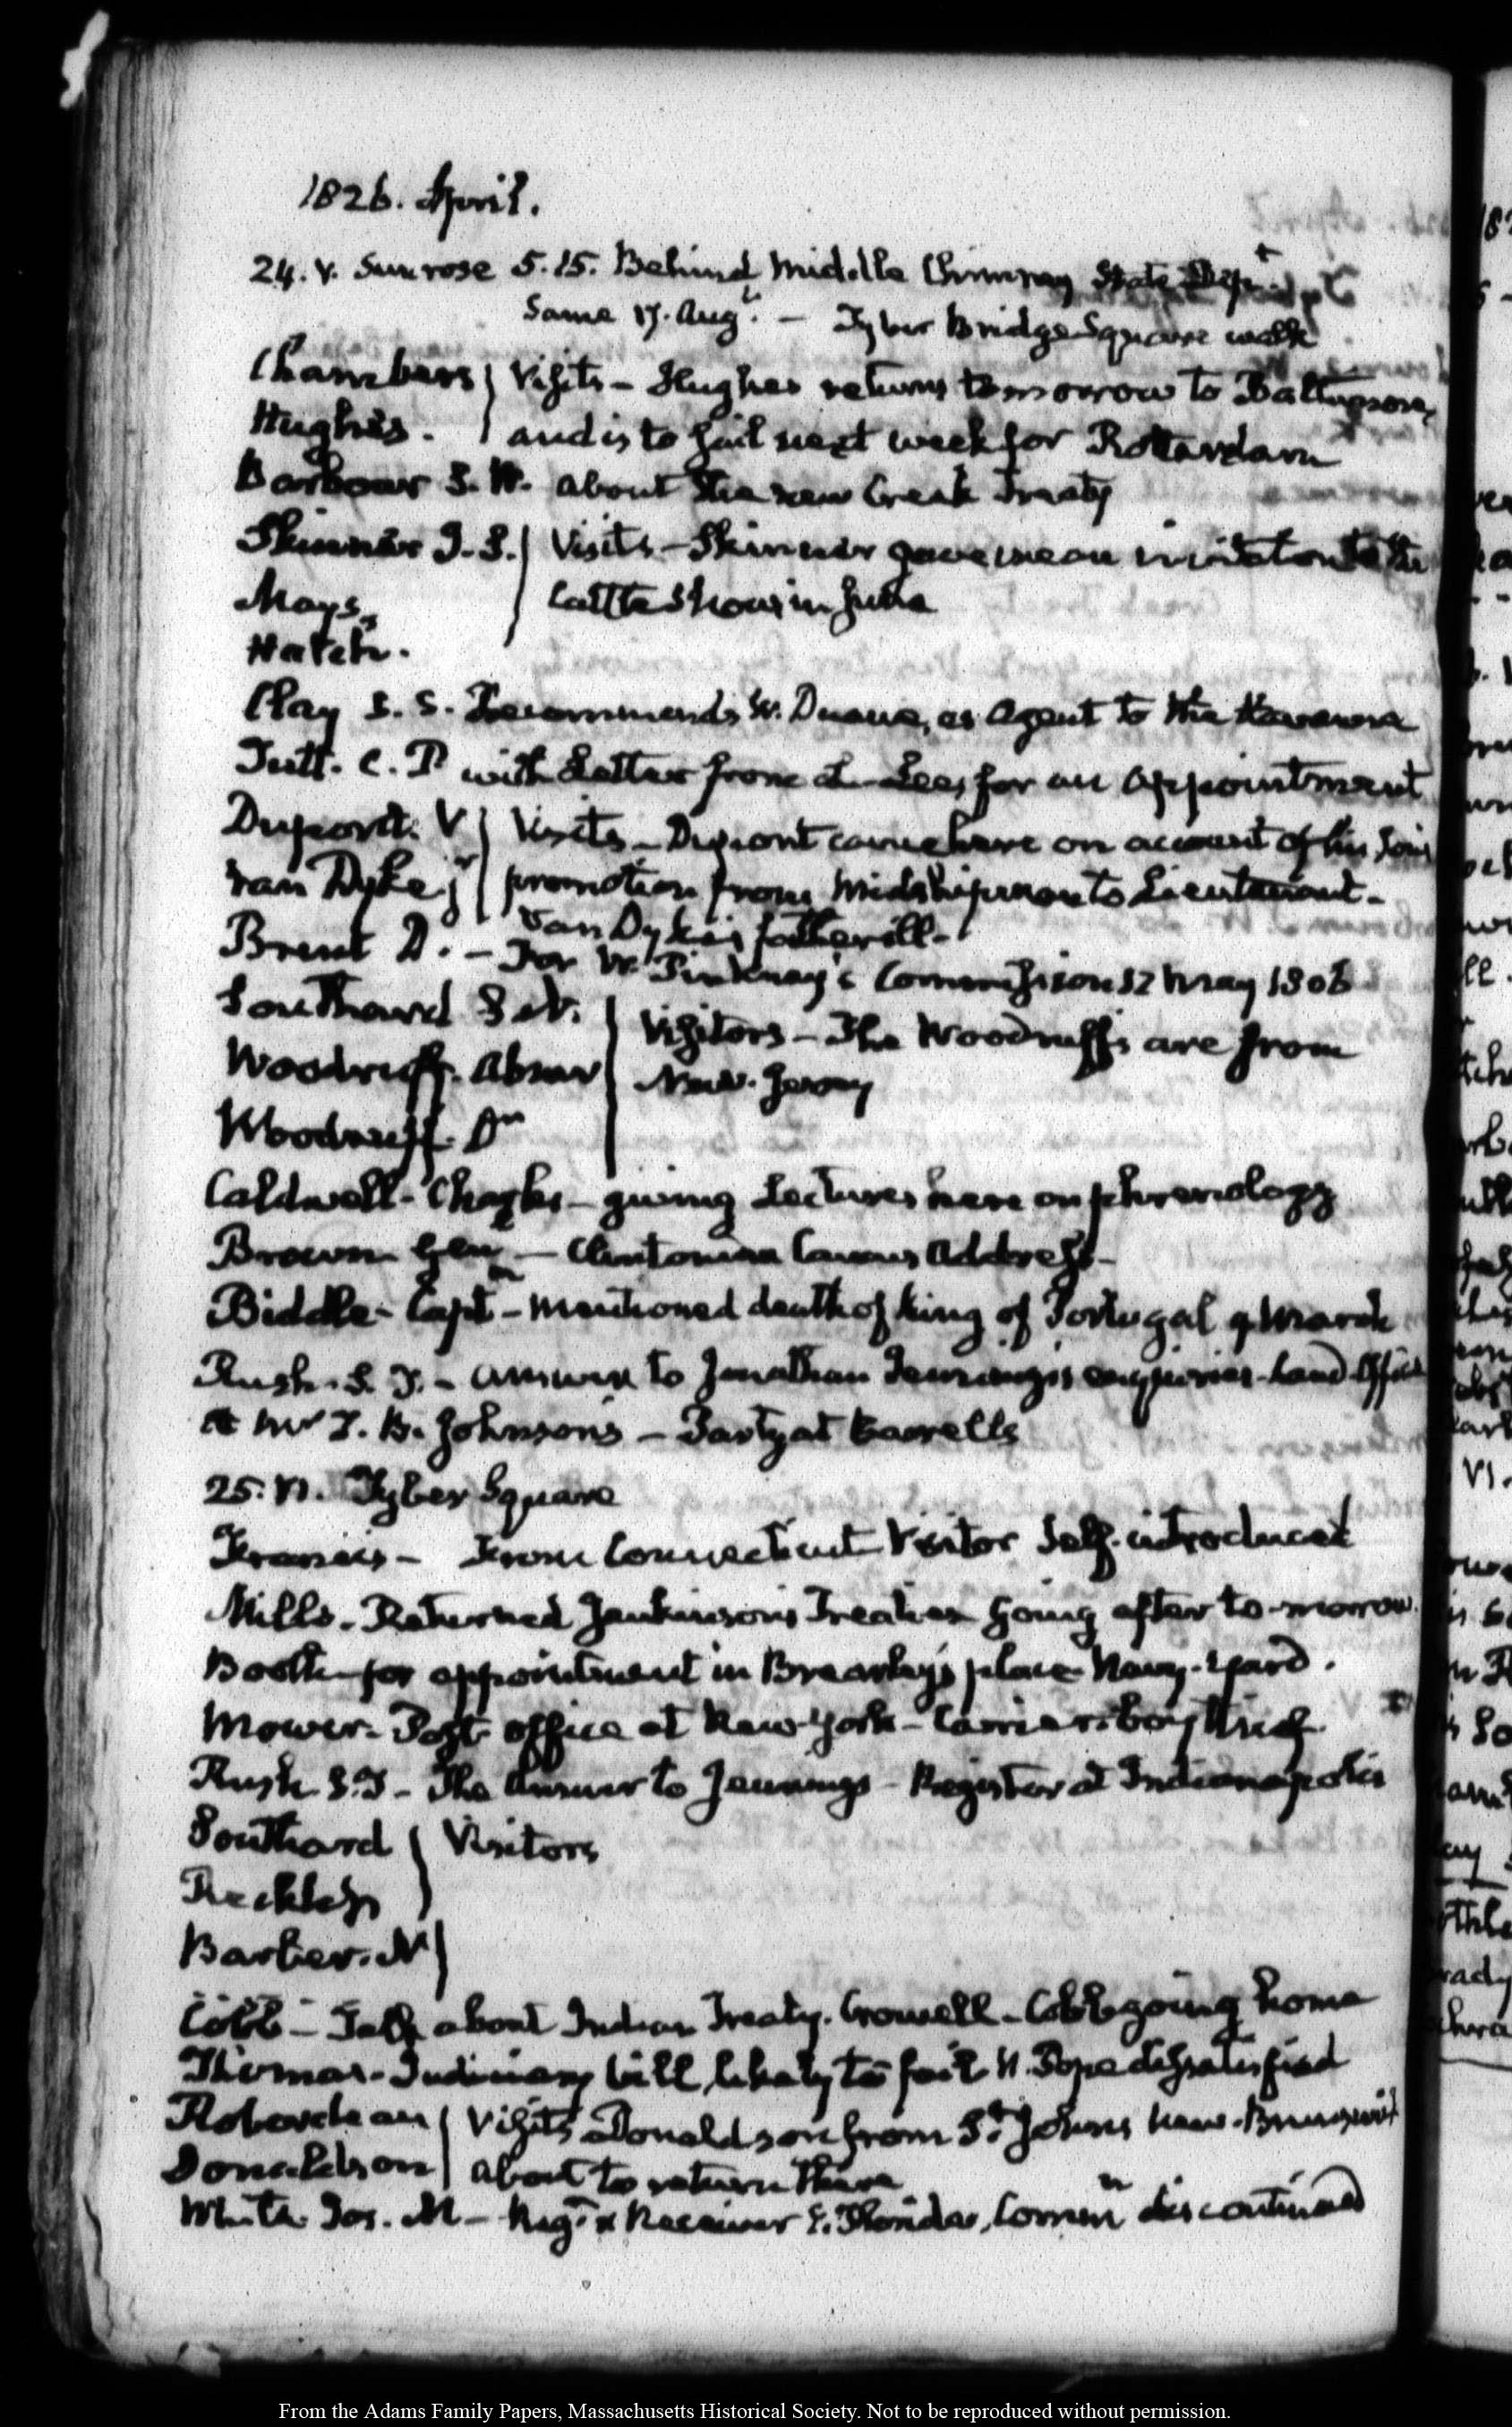 1826. April.
24. V. Sun rose 5.15. Behind Middle Chimney State Dept
Same 17. Augt. — Tyber Bridge Square walk
Chambers } Visits — Hughes returns tomorrow to Baltimore,
Hughes. } and is to sail next week for Rotterdam
Barbour S. W. about the new Creek Treaty
Skinner J. S. } Visits — Skinner gave me an invitation to the
Mays, } Cattle show in June
Hatch.
Clay S. S. Recommends W. Duane, as Agent to the Havanna
Tutt. C. P with Letter from L. Lee, for an appointment
Dupont. V } Visits — Dupont came here on account of his Son's
Van Dyke jr } promotion from Midshipman to Lieutenant —
Van Dyke's father ill —
Brent D. — For W. Pinkney's Commission 12 May 1806
Southard S. N. } Visitors — The Woodruffs are from
Woodruff. Abner } New-Jersey
Woodruff. Dr
Caldwell — Charles — giving Lectures here on phrenology
Brown Genl — Clintonian Caucus Address —
Biddle — Captn — mentioned death of King of Portugal 9 March
Rush. S. T. — answer to Jonathan Jennings's enquiries — Land Office
At Mr T. B. Johnson's — Party at Carrells
25. VI. Tyber Square
Francis — From Connecticut Visitor Self-introduced
Mills — Returned Jenkinson's Treaties Going after to-morrow.
Booth — for appointment in Brearley's place Navy-Yard.
Mower — Post office at New-York — Carrier boy
Rush S. T — The answer to Jennings — Register at Indianapolis
Southard } Visitors
Reckless }
Barber. N }
Cobb — Talk about Indian Treaty. Crowell — Cobb going home
Thomas — Judiciary bill likely to fail N. Pope dissatisfied
Roberdeau } Visits Donaldson from St. Johns New-Brunswick
Donaldson } about to return there
White Jos. M — Regr & Receiver E. Florida, Commn discontinued
From the Adams Family Papers, Massachusetts Historical Society. Not to be reproduced without permission.